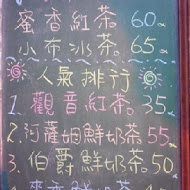 蜜香紅茶 60元
小布冰茶。65元
人氣排行
1.觀音紅茶。35元
2.阿薩姆鮮奶茶 55元
3.伯爵鮮奶茶。50